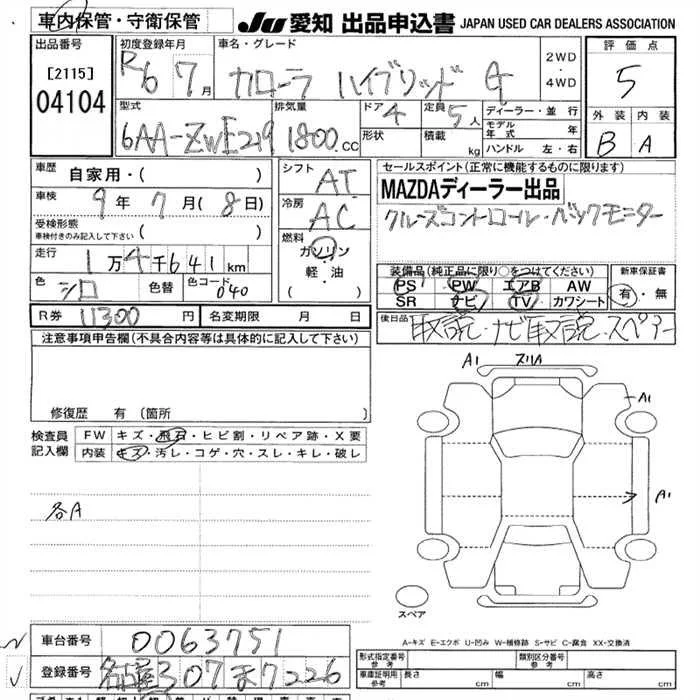 車内保管・守衛保管
JU 愛知 出品申込書 JAPAN USED CAR DEALERS ASSOCIATION
出品番号
[2115]
04104
初度登録年月
R6 7月
車名・グレード
カローラ ハイブリッド G
2WD
・
4WD
評価点
5
外装 内装
B A
型式
6AA-ZWE219
排気量
1800.cc
ドア 4
定員 5人
形状
積載 kg
ディーラー・並行
モデル年式 年
ハンドル 左・右
車歴 自家用・( )
車検 9年 7月(8日)
受検形態
車検付きのみ記入して下さい ( )
走行 1万4千641km
色 シロ 色替 色コード 040
シフト AT
冷房 AC
燃料
ガソリン
軽・油
( )
セールスポイント(正常に機能するものに限ります)
MAZDAディーラー出品
クルーズコントロール・バックモニター
装備品(純正品に限り○をつけてください)
PS PW エアB AW
SR ナビ TV カワシート
新車保証書
有・無
R券 11300円 名変期限 月 日
後日品 取説・ナビ取説・スペアー
注意事項申告欄(不具合内容等は具体的に記入して下さい)
修復歴 有(箇所 )
検査員記入欄
FW キズ・飛石・ヒビ割・リペア跡・X要
内装 キズ・汚レ・コゲ・穴・スレ・キレ・破レ
各A
A1 スリム
A1
A1
スペア
A-キズ E-エクボ U-凹み W-補修跡 S-サビ C-腐食 XX-交換済
車台番号 0063751
登録番号 名古屋307ま7226
形式指定番号
参考
類別区分番号
参考
車庫証明用
参考
長さ cm 幅 cm 高さ cm